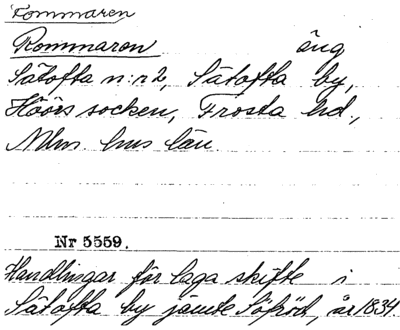 Kommaren
Rommaron äng
Sätofta n:r 2, Sätofta by,
Höörs socken, Frosta hd.,
Mlm. hus län
Nr 5559.
Handlingar för laga skifte i
Sätofta by jämte Sjöröd, år 1834.